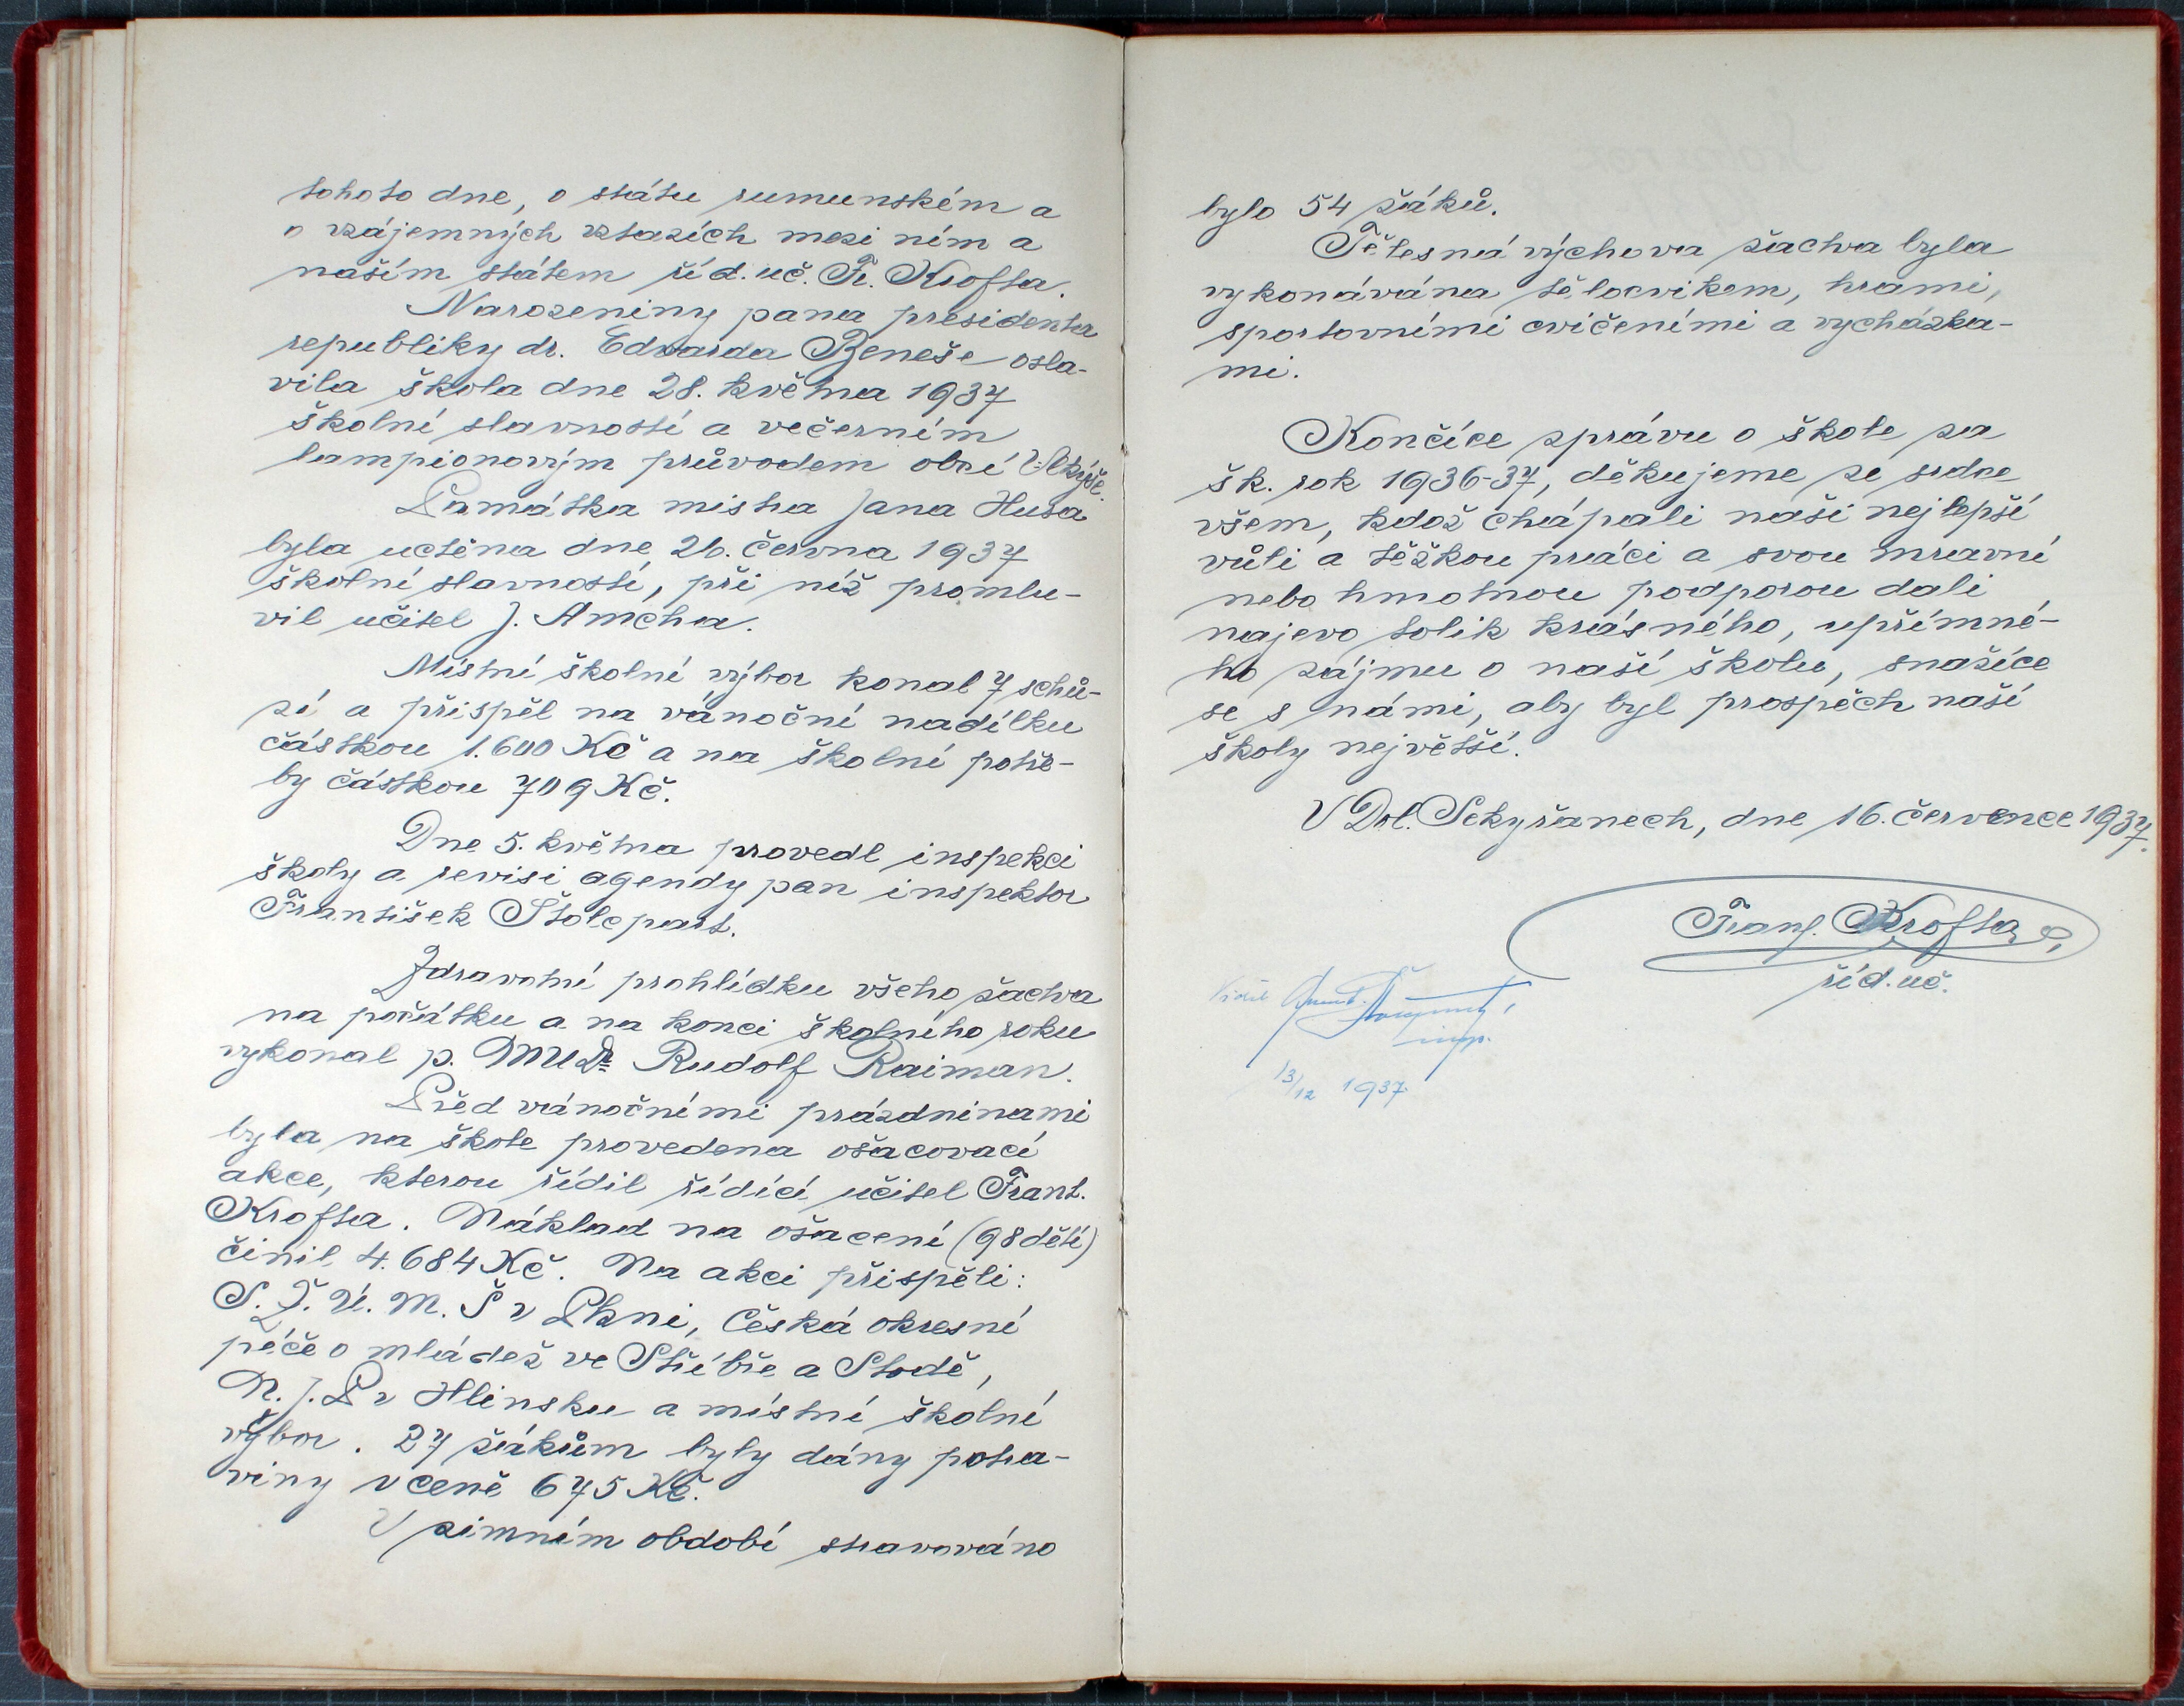 tohoto dne, o státu rumunském a
o vzájemných vztazích mezi ním a
naším státem říd. uč. Fr. Krofta.
Narozeniny pana presidenta
republiky dr. Edvarda Beneše osla-
vila škola dne 28. května 1937
školní slavností a večerním
lampionovým průvodem obcí Vlkýše.
Památka mistra Jana Husa
byla uctěna dne 26. června 1937
školní slavností, při níž promlu-
vil učitel J. Amcha.
Místní školní výbor konal 7 schů-
zí a přispěl na vánoční nadílku
částkou 1.600 Kč a na školní potře-
by částkou 709 Kč.
Dne 5. května provedl inspekci
školy a revisi agendy pan inspektor
František Štolcpart.
Zdravotní prohlídku všeho žactva
na počátku a na konci školního roku
vykonal p. MUDr Rudolf Raiman.
Před vánočními prázdninami
byla na škole provedena ošacovací
akce, kterou řídil řídící učitel Frant.
Krofta. Náklad na ošacení (98 dětí)
činil 4.684 Kč. Na akci přispěli:
S. Ž. Ú. M. Š v Plzni, Česká okresní
péče o mládež ve Stříbře a Stodě,
N. J. P v Hlinsku a místní školní
výbor. 27 žákům byly dány potra-
viny v ceně 675 Kč.
V zimním období stravováno
bylo 54 žáků.
Tělesná výchova žactva byla
vykonávána tělocvikem, hrami,
sportovními cvičeními a vycházka-
mi.
Končíce zprávu o škole za
šk. rok 1936-37, děkujeme ze srdce
všem, kdož chápali naši nejlepší
vůli a těžkou práci a svou mravní
nebo hmotnou podporou dali
najevo tolik krásného, upřímné-
ho zájmu o naší školu, snažíce
se s námi, aby byl prospěch naší
školy největší.
V Dol. Sekyřanech, dne 16. července 1937.
Frant. Krofta,
říd. uč.
Viděl
insp.
13/12 1937.